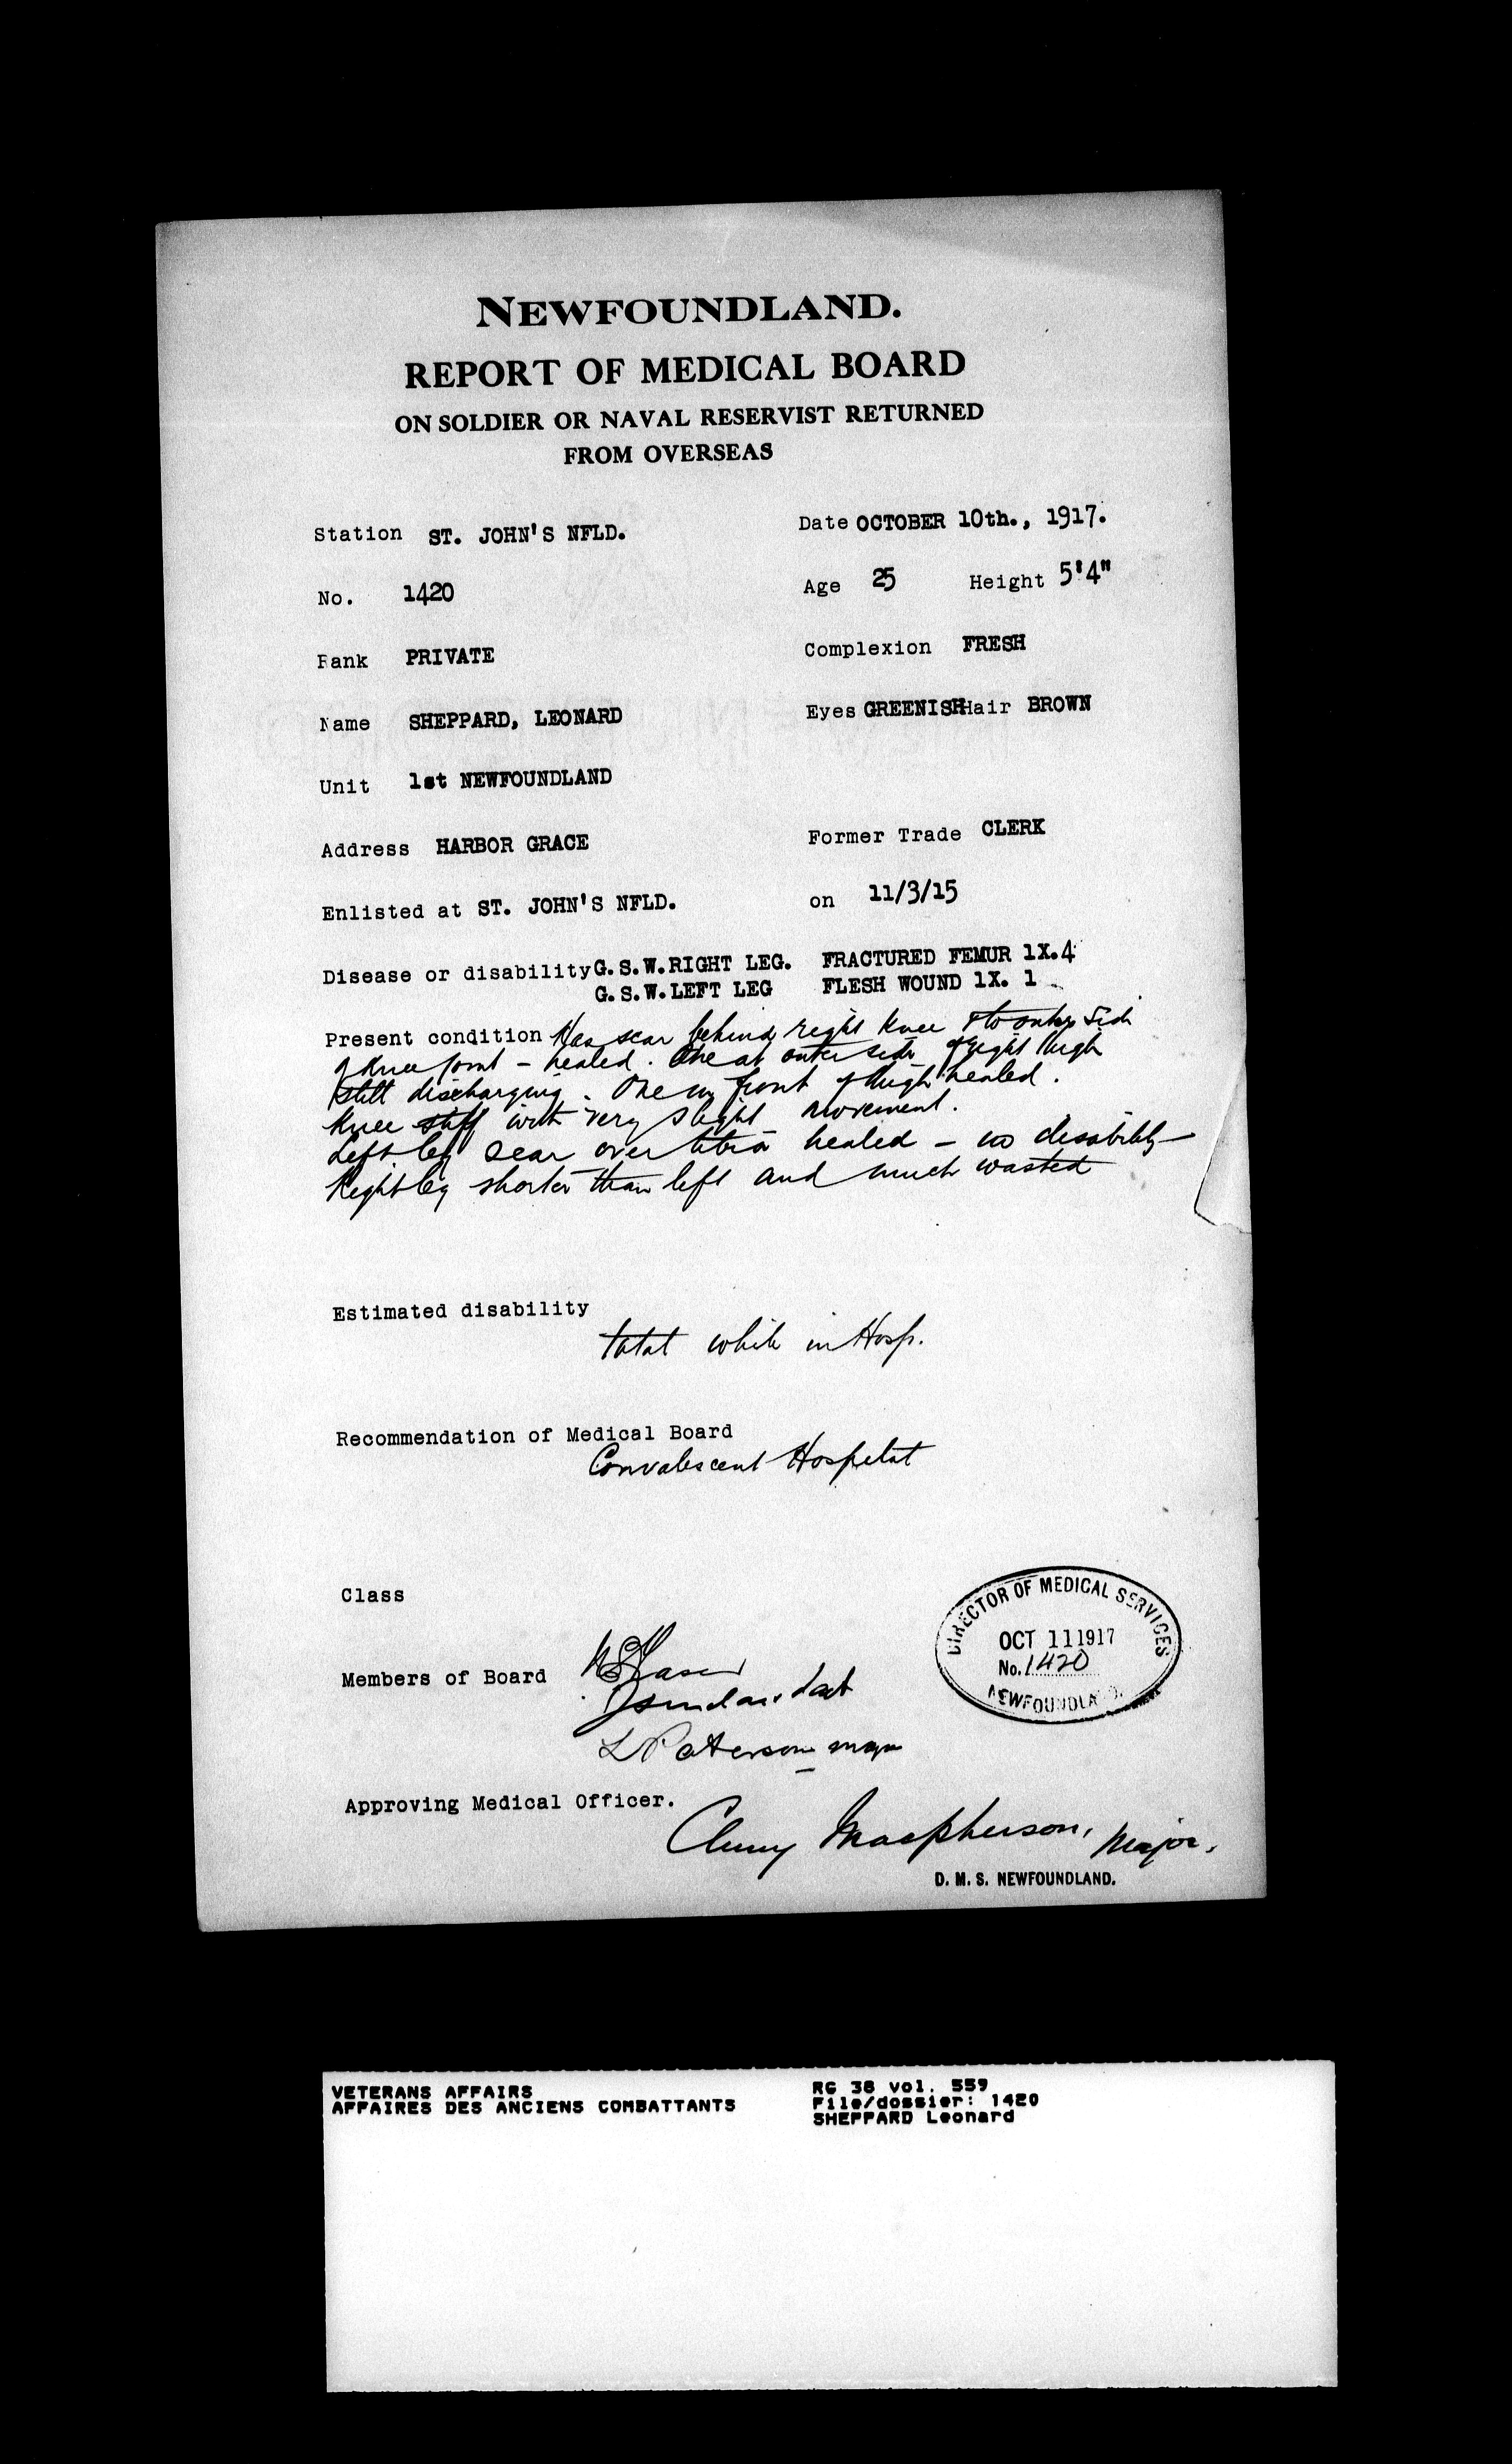 NEWFOUNDLAND.
REPORT OF MEDICAL BOARD
ON SOLDIER OR NAVAL RESERVIST RETURNED
FROM OVERSEAS
Station ST. JOHN'S NFLD. Date OCTOBER 10th., 1917.
No. 1420 Age 25 Height 5'4"
Rank PRIVATE Complexion FRESH
Name SHEPPARD, LEONARD Eyes GREENISH Hair BROWN
Unit 1st NEWFOUNDLAND
Address HARBOR GRACE Former Trade CLERK
Enlisted at ST. JOHN'S NFLD. on 11/3/15
Disease or disability G.S.W. RIGHT LEG. FRACTURED FEMUR 1X.4
G.S.W. LEFT LEG FLESH WOUND 1X. 1
Present condition Has scar behind right knee & to outer side
of knee joint - healed. One at outer side of right thigh
still discharging. One in front of thigh healed.
Knee stiff with very slight movement.
Left leg scar over tibia healed - no disability -
Right leg shorter than left and much wasted
Estimated disability
total while in Hosp.
Recommendation of Medical Board
Convalescent Hospital
Class
Members of Board
L Paterson major
Approving Medical Officer.
Cluny Macpherson, Major.
D. M. S. NEWFOUNDLAND.
DIRECTOR OF MEDICAL SERVICES
OCT 11 1917
No. 1420
NEWFOUNDLAND.
VETERANS AFFAIRS RG 38 Vol. 559
AFFAIRES DES ANCIENS COMBATTANTS File/dossier: 1420
SHEPPARD Leonard